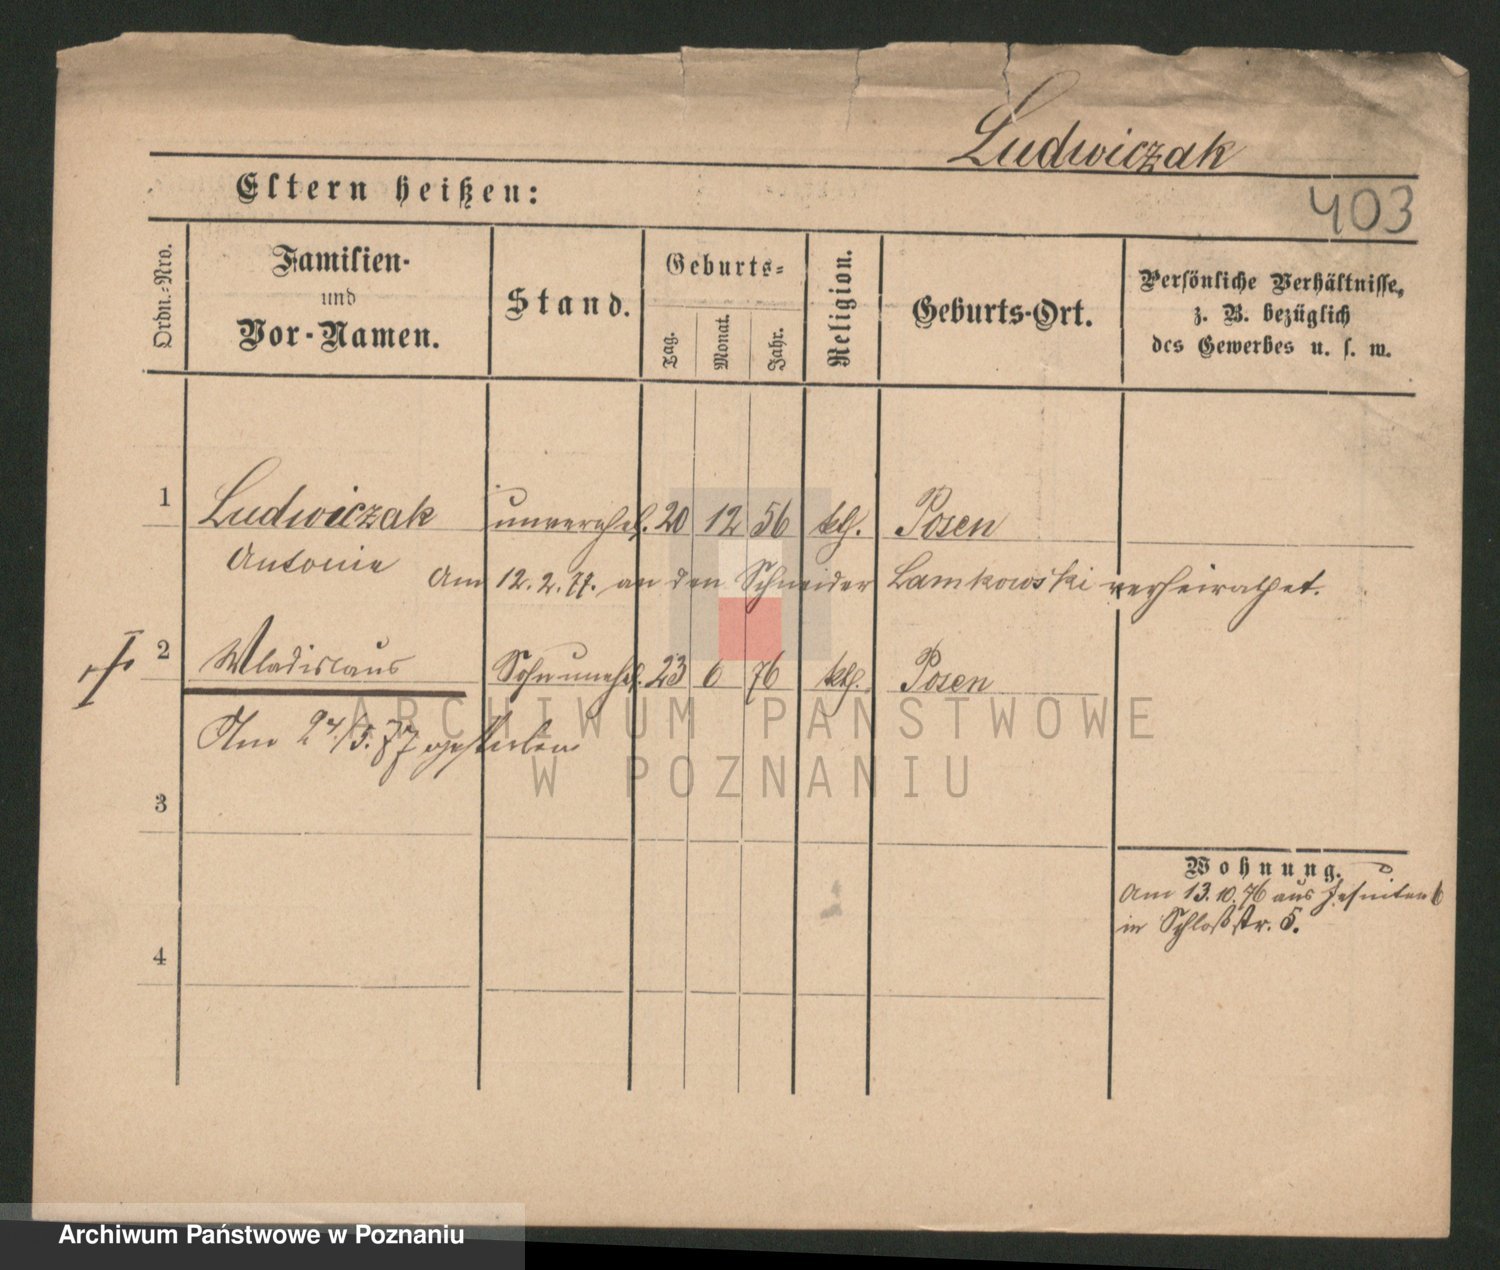 Ludwiczak
403
Eltern heißen:
Ordn.-Nro.
Familien-
und
Vor-Namen.
Stand.
Geburts-
Tag.
Monat.
Jahr.
Religion.
Geburts-Ort.
Persönliche Verhältnisse,
z. B. bezüglich
des Gewerbes u. s. w.
1 Ludwiczak unverehel. 20 12 56 kth. Posen
Antonie
Am 12.2.77. an den Schneider Lamkowski verheirathet.
2 Wladislaus Sohn unehel. 23 6 76 kth. Posen
Am 24/5. 77 gestorben
ARCHIWUM PAŃSTWOWE
W POZNANIU
3
Wohnung.
Am 13.10.76 aus Jesuiten 6
in Schloßstr. 5.
4
Archiwum Państwowe w Poznaniu